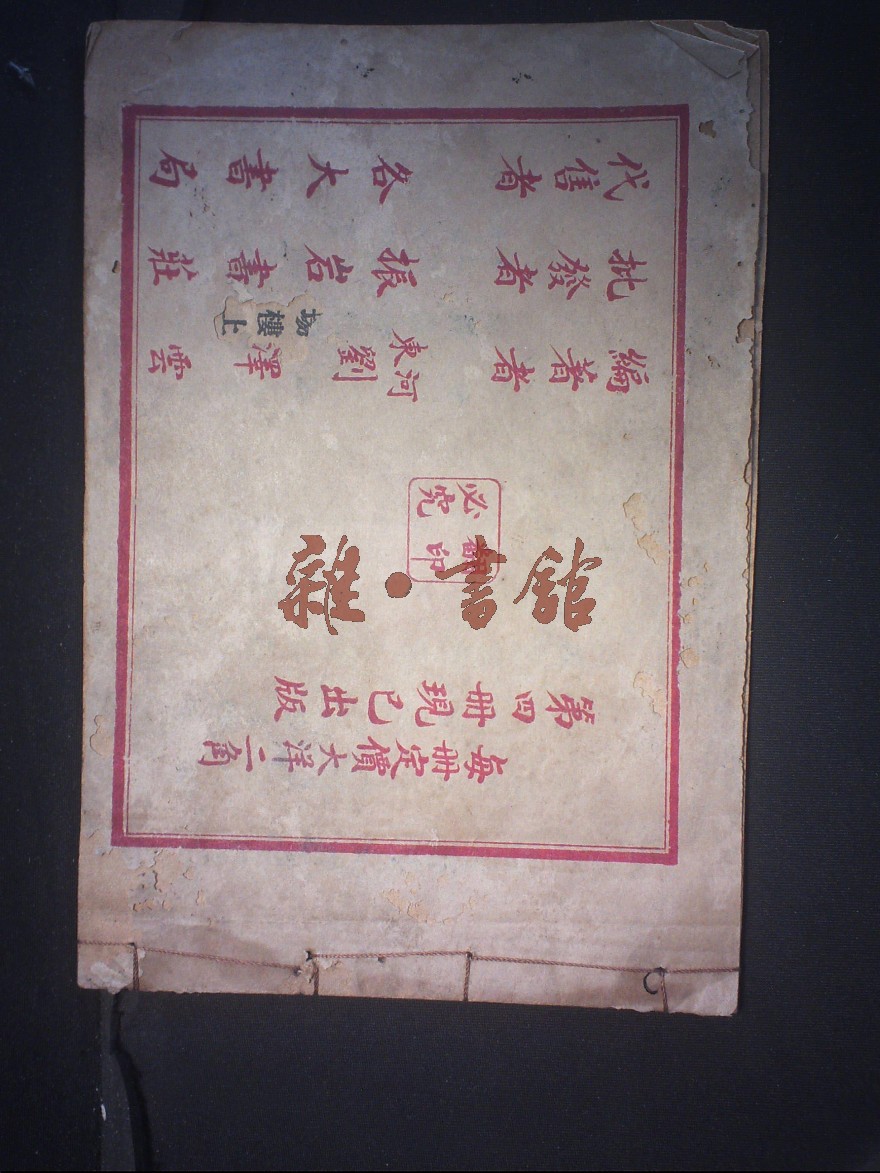 每冊定價大洋二角
第四冊現已出版
翻印
必究
編著者 河東 劉澤雲
場樓上
批發者 振岩書莊
代售者 各大書局
雜·書館